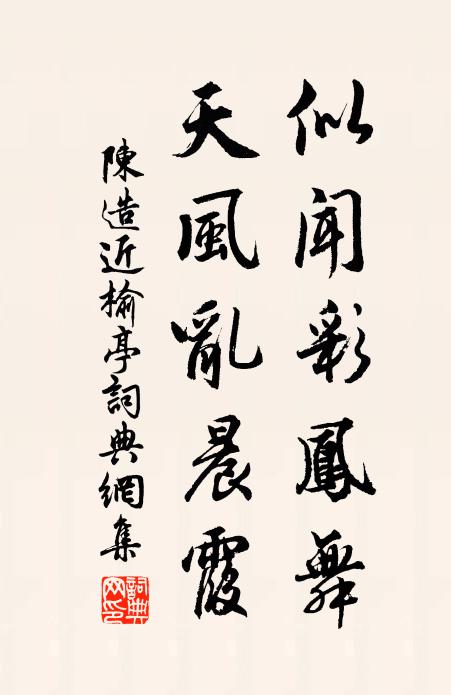 似聞彩鳳舞
天風亂晨霞
陳造近榆亭詞典網集
詞典網印